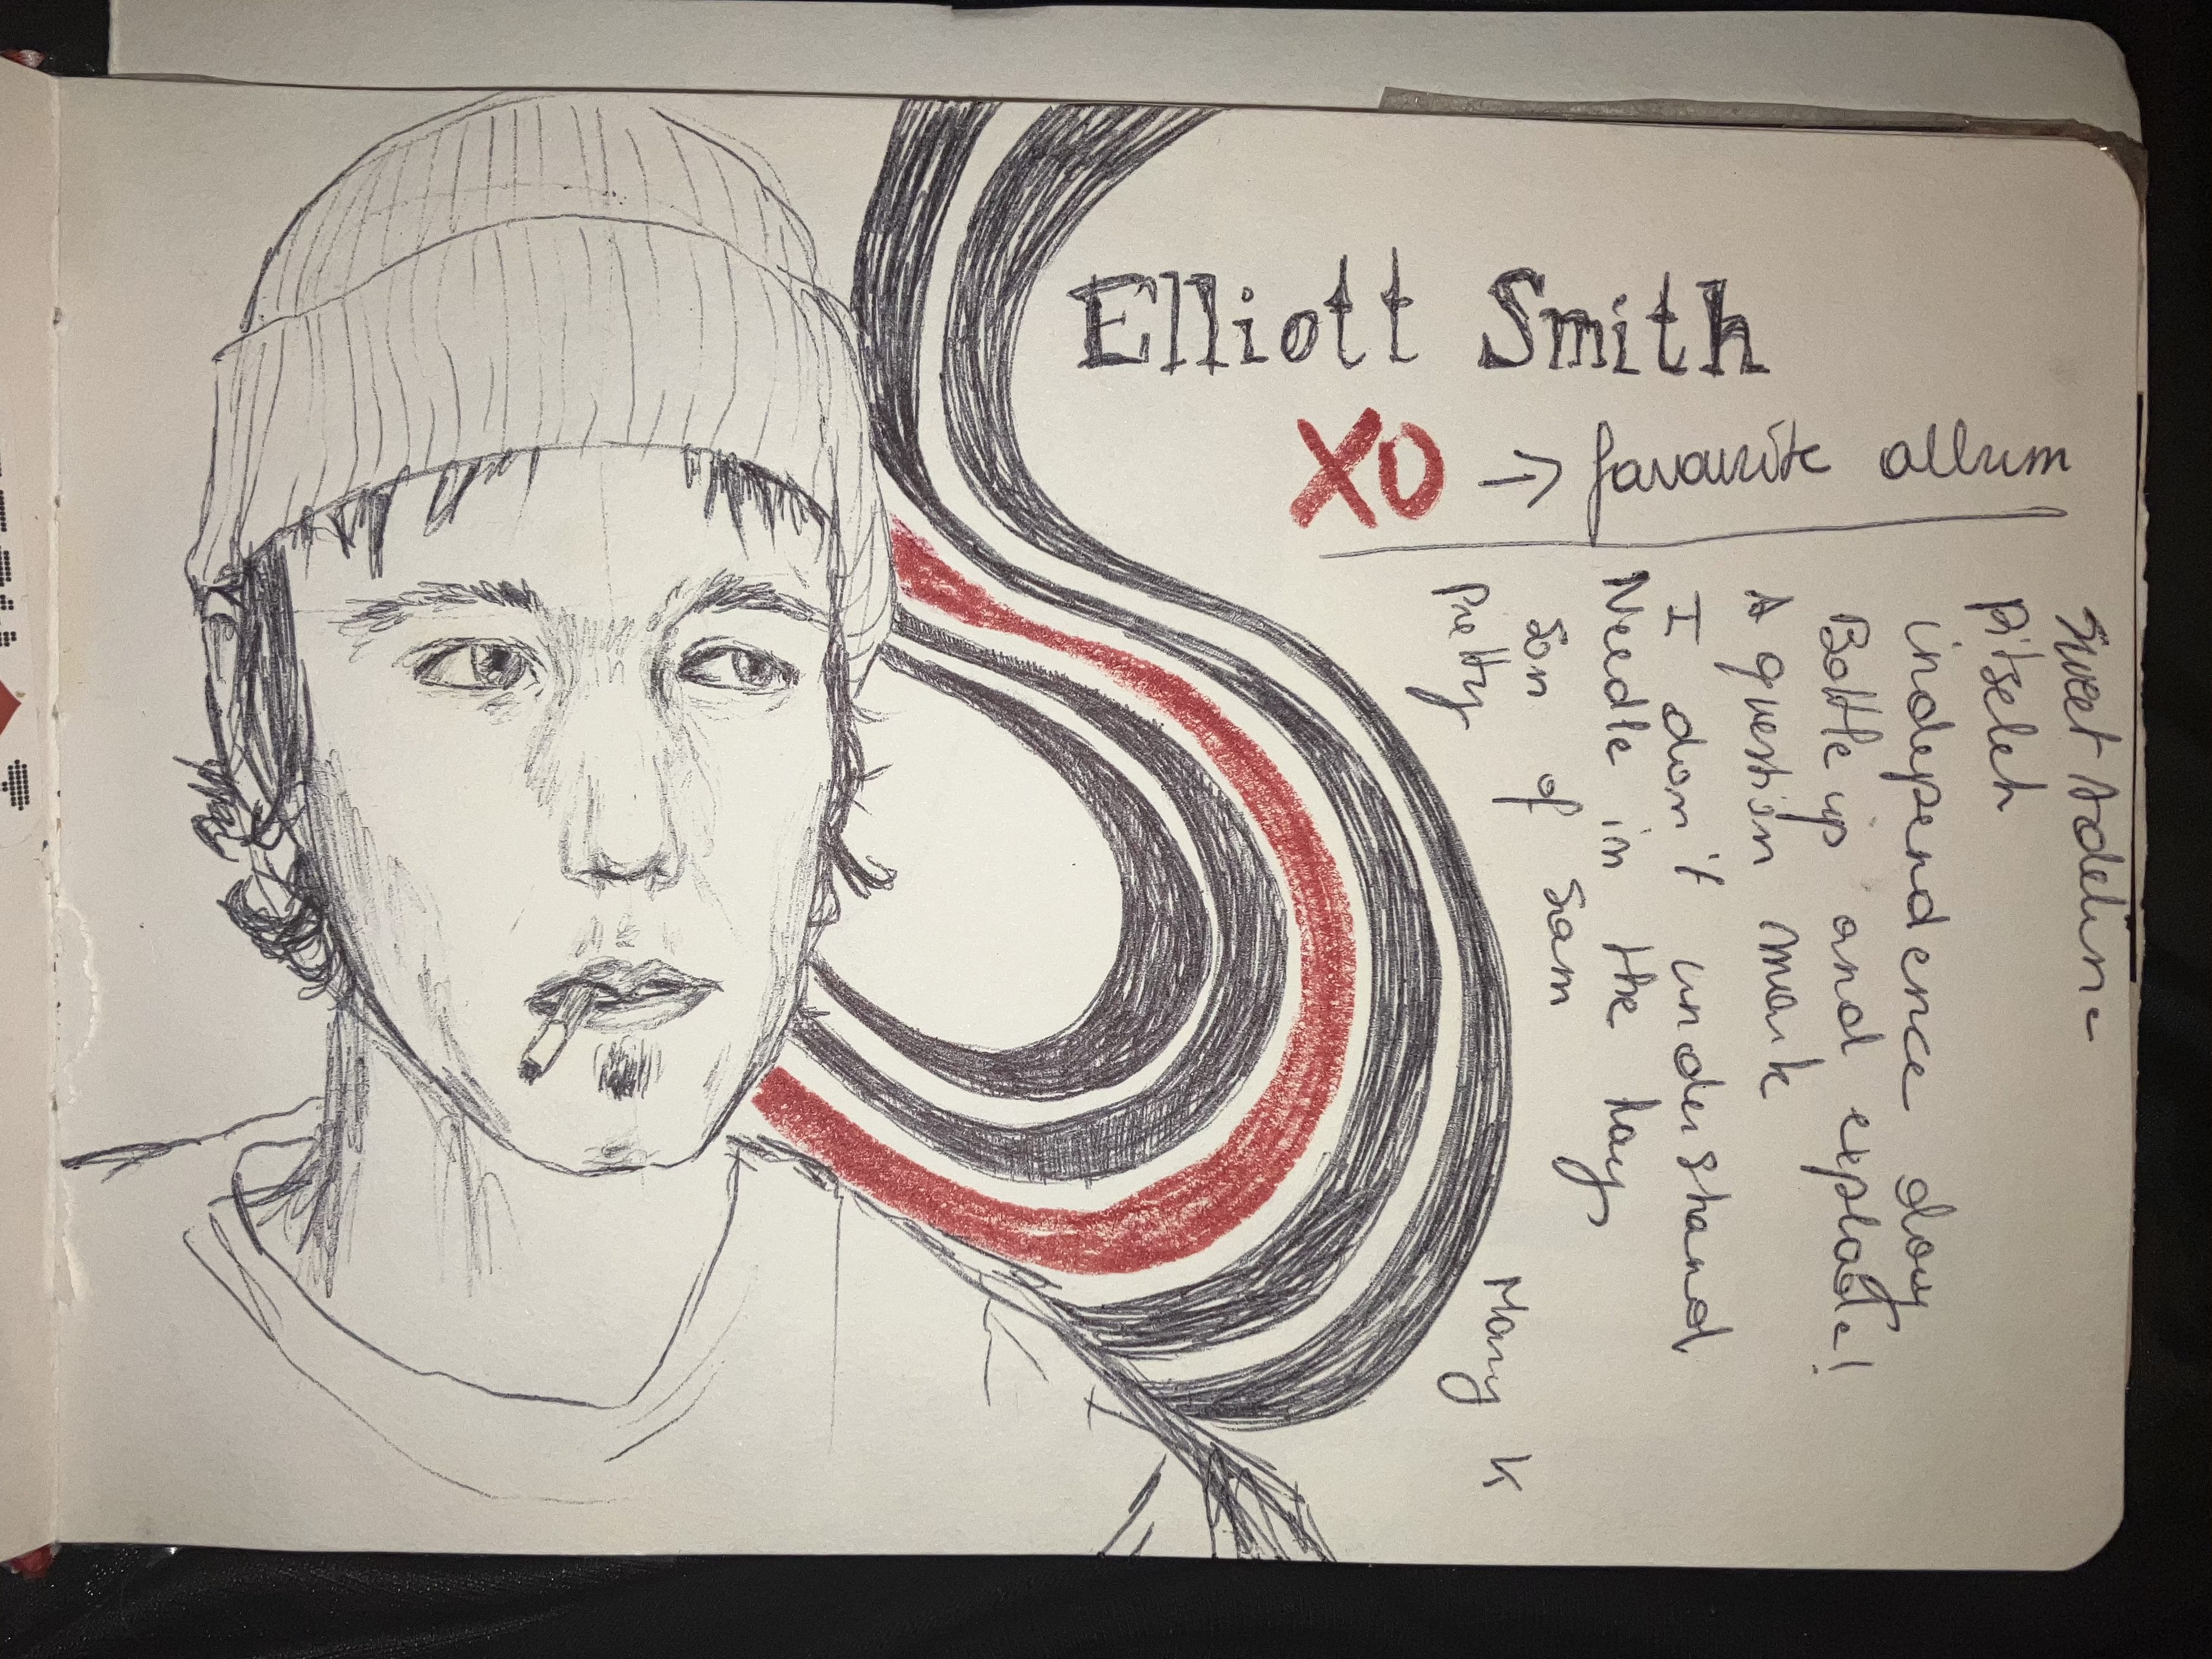 Elliott Smith
XO → favourite album
Sweet Adeline
Pitseleh
independence day
Bottle up and explode!
A question mark
I don't understand
Needle in the hay
Son of Sam
Pretty Mary K